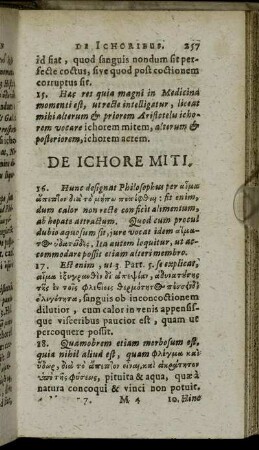 DE ICHORIBUS. 257
id fiat, quod sanguis nondum sit per-
fecte coctus, sive quod post coctionem
corruptus sit.
15. Hæc res quia magni in Medicina
momenti est, ut recte intelligatur, liceat
mihi alterum & priorem Aristotelis icho-
rem vocare ichorem mitem, alterum &
posteriorem, ichorem acrem.
DE ICHORE MITI.
16. Hunc designat Philosophus per αἷμα
ἄπεπτον διὰ τὸ μήπω πεπέφθαι: sit enim,
dum calor non recte conficit alimentum,
ab hepate attractum. Quod cum procul
dubio aquosum sit, jure vocat idem αἵμα-
τ@ ὑδατῶδες. Ita autem loquitur, ut ac-
commodare possit etiam alteri membro.
17. Est enim, ut 3. Part. 5. se explicat,
αἷμα ἐξυγρωθὲν δι᾽ ἀπεψίαν, ἀδυνατούσης
τῆς ἐν τοῖς φλεβίοις θερμότητ@ πέσσειν δι᾽
ὀλιγότητα, sanguis ob inconcoctionem
dilutior, cum calor in venis appensis-
que visceribus paucior est, quam ut
percoquere possit.
18. Quamobrem etiam morbosum est,
quia nihil aliud est, quam φλέγμα καὶ
ὕδωρ, διὰ τὸ ἄπεπτον εἶναι, καὶ ἀκράτητον
ὑπὸ τῆς φύσεως, pituita & aqua, quæ à
natura concoqui & vinci non potuit.
M 4 10. Hinc